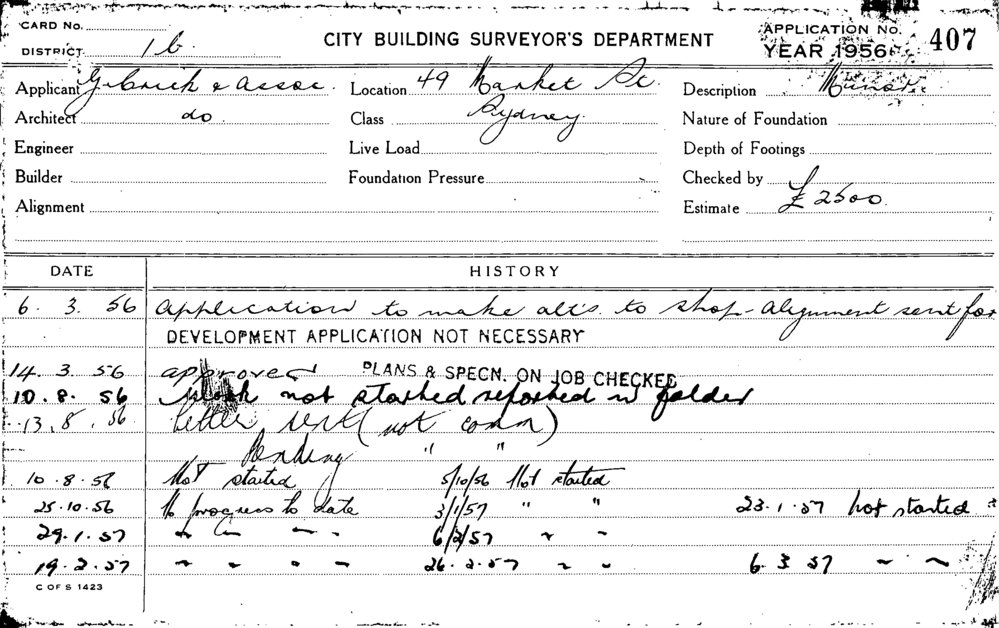 CARD No.
DISTRICT 1b
CITY BUILDING SURVEYOR'S DEPARTMENT
APPLICATION No. 407
YEAR 1956
Applicant & Assoc. Location 49 Market St. Description
Architect do Class Sydney Nature of Foundation
Engineer Live Load Depth of Footings
Builder Foundation Pressure Checked by
Alignment Estimate £2500
DATE HISTORY
6. 3. 56 Application to make alts. to shop - Alignment sent for
DEVELOPMENT APPLICATION NOT NECESSARY
14. 3. 56 approved PLANS & SPECN. ON JOB CHECKED
10. 8. 56 Work not started reported in folder
13. 8. 56 letter sent (not comm)
Pending " "
10. 8. 56 Not started 5/10/56 Not started
25. 10. 56 No progress to date 3/1/57 " " 23. 1. 57 not started
29. 1. 57 " " " 6/2/57 " "
19. 2. 57 " " " " 26. 2. 57 " " 6. 3. 57 " "
C OF S 1423